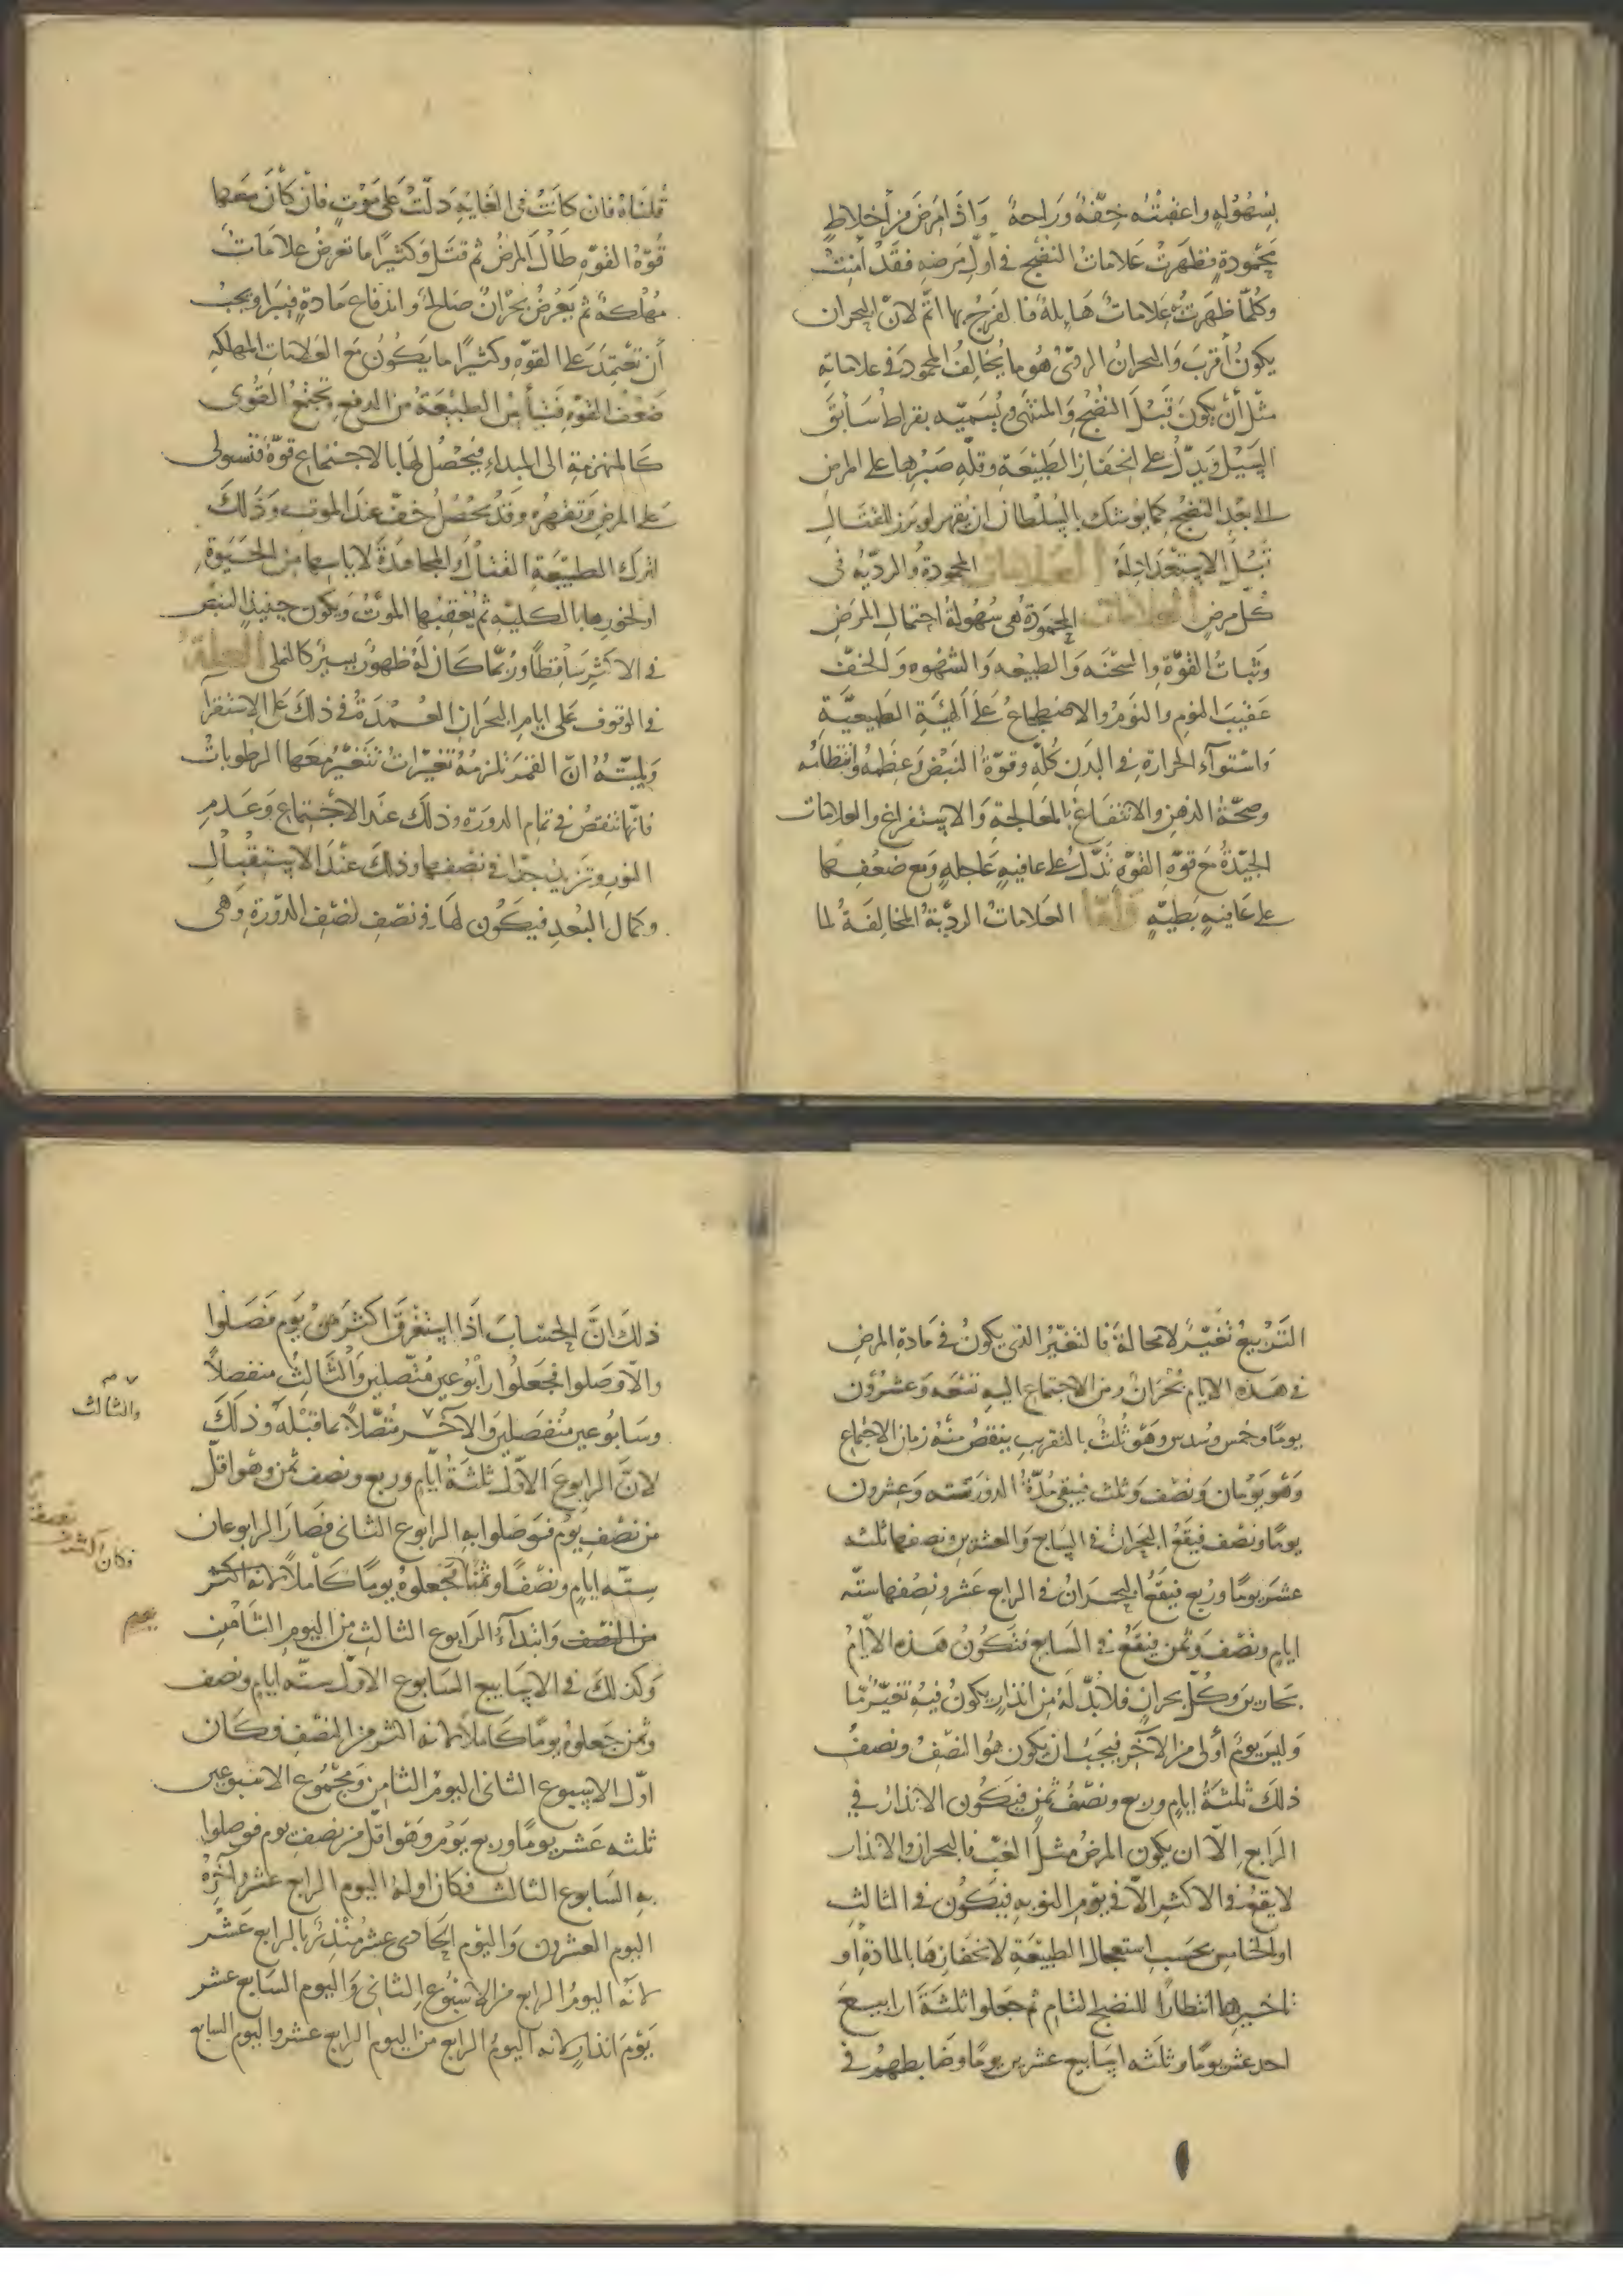 بسهولةٍ واعقبته خفّةٌ وراحةٌ واذا مرض من أخلاطٍ
محمودةٍ فظهرت علامات النضج في اول مرضه فقد أمنت
وكلّما ظهرت علاماتٌ هايلة فالفرج بها اتمّ لانّ البحران
يكون أقرب والبحران الردّى هو ما يخالف المحمود في علاماته
مثل أن يكون قبل النضج والمنتهى ويسمّيه بقراط سابق
السبيل ويدلّ على انحفاز الطبيعة وقلّه صبرها على المرض
الى بعد النضج كما يوشك بالسلطان ان يقهر لو برز للقتال
قبل الاستعداد له العلامات المحمودة والرديّه فى
كلّ مرضٍ العلامات المحمودة هى سهولة احتمال المرض
وثبات القوّة والسّحنه والطبيعه والشهوه والخفّ
عقيب النوم والنوم والاضطجاع على الهيئة الطبيعيّة
واستوآء الحرارة في البدن كلّه وقوّة النبض وعظمه وانتظامه
وصحّة الذهن والانتفاع بالمعالجة والاستفراغ والعلامات
الجيّدة مع قوّة القوّه تدّل على عافيه عاجله ومع ضعفها
على عافيه بطيّه وامّا العلامات الرديّة المخالفة لما
قلناه فان كانت في الغايه دلّت على موتٍ فان كان معها
قوّة القوّه طال المرض ثم قتل وكثيرًا ما تعرض علامات
مهلكه ثم يعرض بحرانٌ صالحٌ واندفاع مادةٍ فيبرا ويجب
أن تعتمد على القوّه وكثيرًا ما يكون مع العلامات المهلكه
ضعف القوّه فتيأس الطبيعة من الدفع وتجتمع القوى
كالمنهزمة الى المبداء فيحصل لها بالاجتماع قوّة فتستولى
على المرض وتقهره وقد يحصل خفّ عند الموت وذلك
لترك الطبيعة القتال والمجاهدة لاياسها من الحيوة
او لخورها بالكليه ثم يعقبها الموت ويكون حينيذ النبض
في الاكثر ساقطًا وربّما كان له ظهورٌ يسيرٌ كالنملى العلّة
في الوقوف على ايام البحران العمدة في ذلك على الاستقرآ
ولميّته انّ القمر تلزمه تغيّرات تتغيّر معها الرطوبات
فانّها تنقص في تمام الدورة وذلك عند الاجتماع وعدم
النور وتزيد جدًّا في نصفها وذلك عند الاستقبال
وكمال البعد فيكون لها في نصف نصف الدورة وهى
التربيع تغيّرٌ لا محالة فالتغيّر الذى يكون في مادة المرض
في هذه الايام بحرانٌ ومن الاجتماع اليه تسعه وعشرون
يومًا وخمس وسدس وهو ثلث بالتقريب ينقص منه زمان الاجتماع
وهو يومان ونصف وثلث فيبقى مدّة الدوره ستّه وعشرون
يومًا ونصف فيقع البحران في السابع والعشرين ونصفها ثلثه
عشر يومًا وربع فيقع البحران في الرابع عشر ونصفها ستّه
ايام ونصف وثمن فيقع في السابع فتكون هذه الايام
بحارين وكلّ بحرانٍ فلا بدّ له من انذارٍ يكون فيه تغيّرٌ مّا
وليس يوم أولى من الآخر فيجب ان يكون هو النصف ونصف
ذلك ثلثة ايام وربع ونصف ثمن فيكون الانذار في
الرابع الّا ان يكون المرض مثل الغب فالبحران والانذار
لا يقع في الاكثر الّا في يوم النوبه فيكون في الثالث
او الخامس بحسب استعجال الطبيعة لانحفازها بالمادة او
تاخيرها انتظارًا للنضج التام ثم جعلوا ثلثة ارابيع
احد عشر يومًا وثلثه اسابيع عشرين يومًا وضابطهم في
ذلك انّ الحساب اذا استغرق اكثر من يوم فصلوا
والّا وصلوا فجعلوا رابوعين متّصلين والثالث منفصلًا
وسابوعين منفصلين والآخر متّصلًا بما قبله وذلك
لانّ الرابوع الاوّل ثلثة ايّام وربع ونصف ثمن وهو اقلّ
من نصف يوم فوصلوا به الرابوع الثانى فصار الرابوعان
ستّه ايام ونصفًا وثمنًا فجعلوه يومًا كاملًا لانه اكثر
من النصف وابتدآء الرابوع الثالث من اليوم الثامن
وكذلك في الاسابيع السابوع الاوّل ستّه ايام ونصف
وثمن جعلوه يومًا كاملًا لانه اكثر من النصف فكان
اوّل الاسبوع الثانى اليوم الثامن ومجموع الاسبوعين
ثلثه عشر يومًا وربع يوم وهو اقل من نصف يوم فوصلوا
به السابوع الثالث فكان اوله اليوم الرابع عشر وآخره
اليوم العشرون واليوم الحادى عشر منذرٌ بالرابع عشر
لانّه اليوم الرابع من الاسبوع الثانى واليوم السابع عشر
يوم انذارٍ لانه اليوم الرابع من اليوم الرابع عشر واليوم السابع
والثالث
فكان